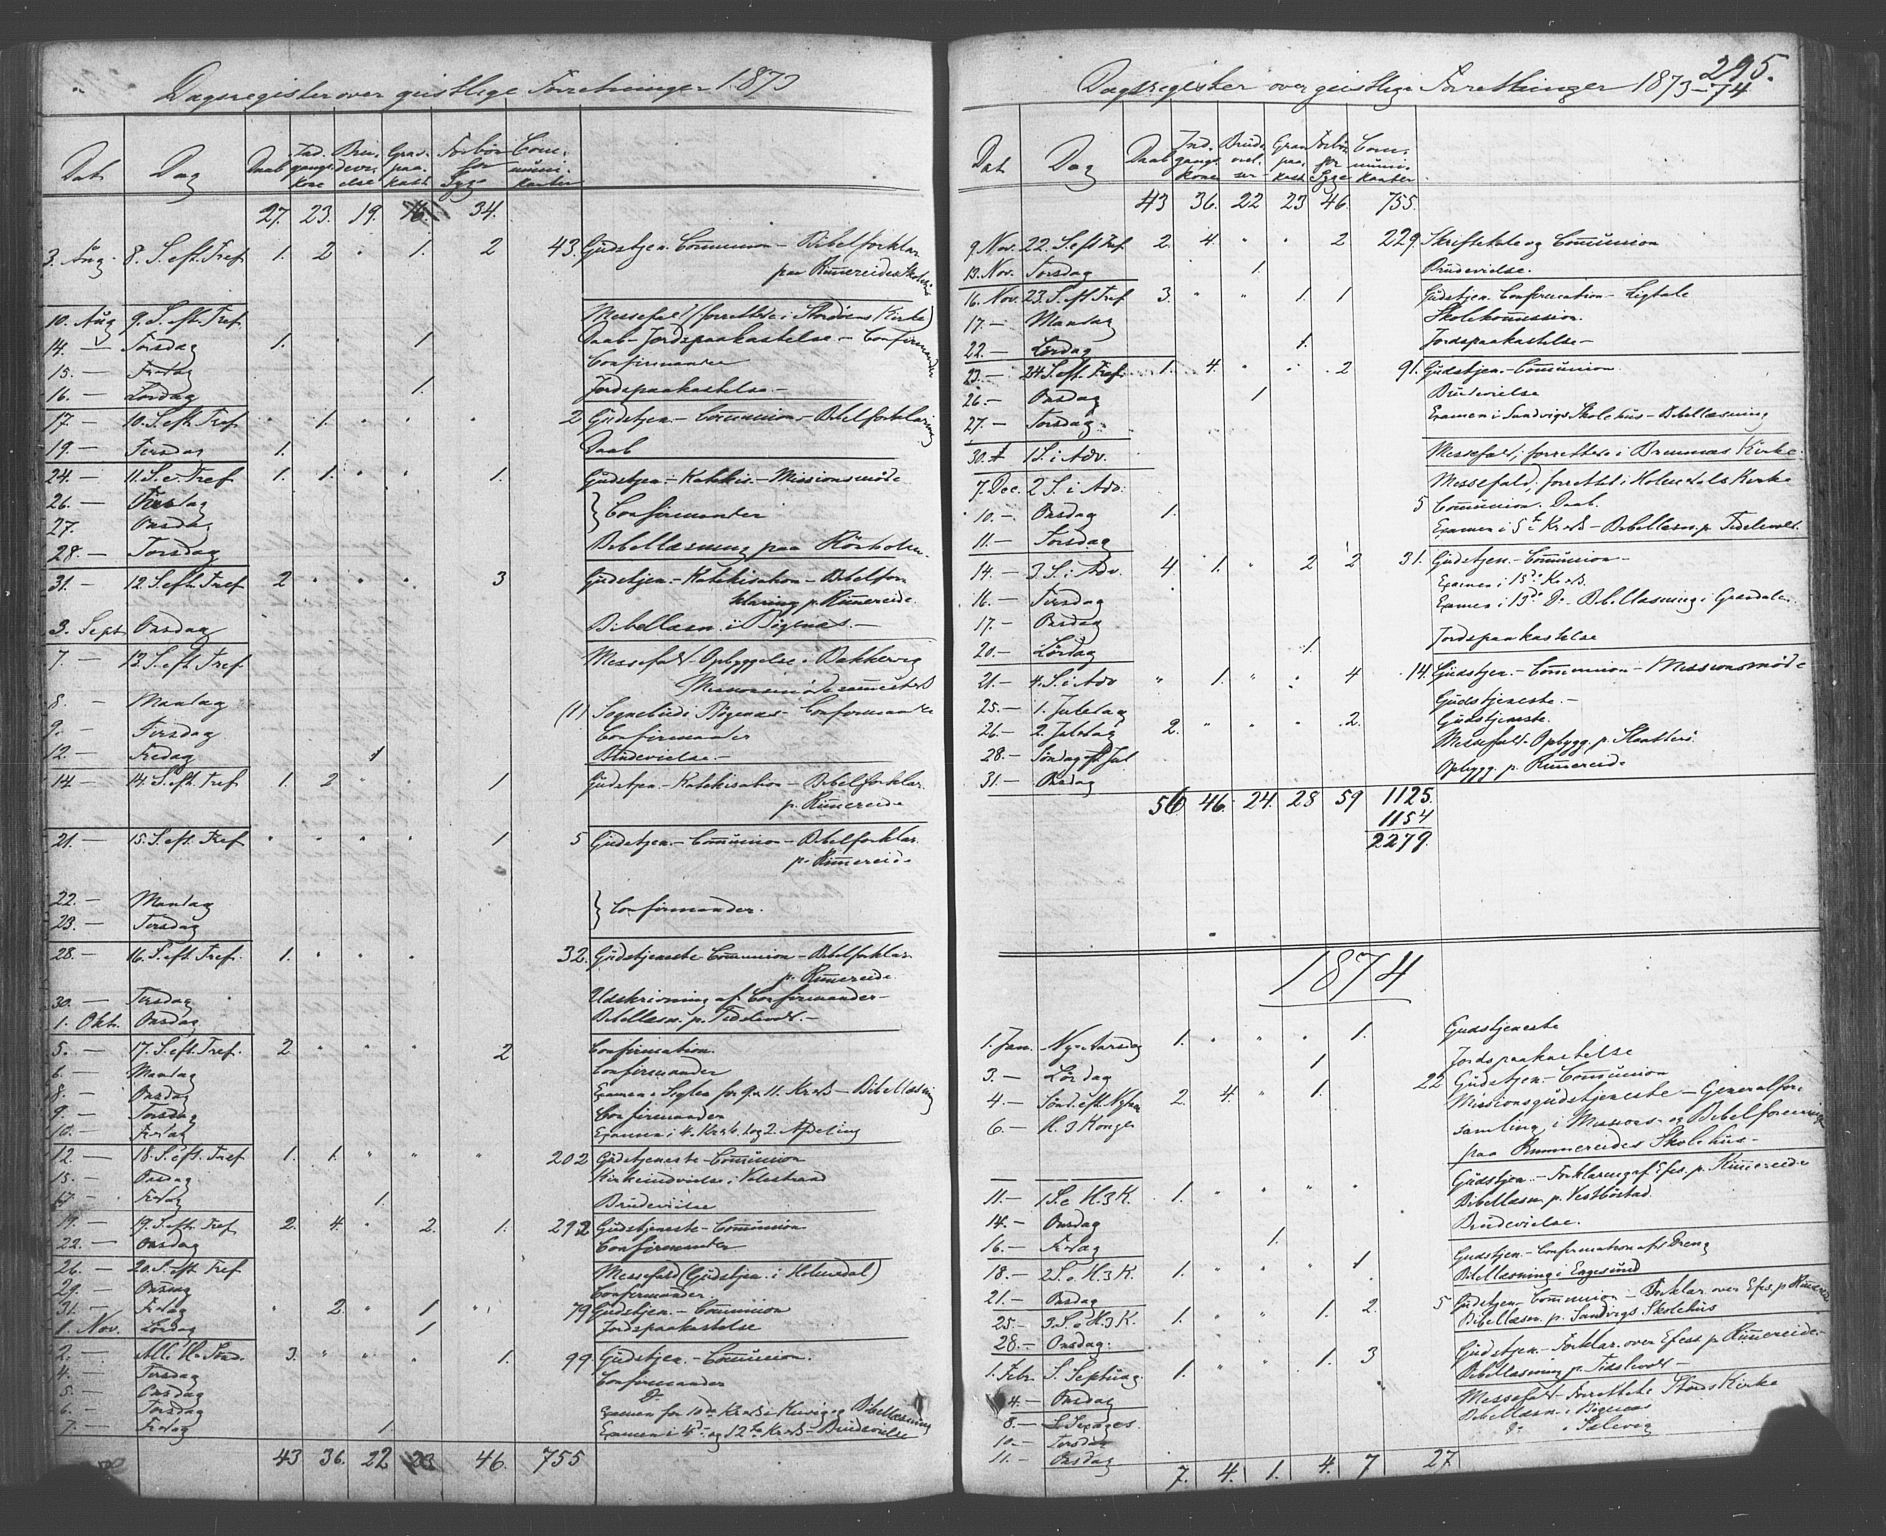 Dagsregister over geistlige Forretninger 1873
Dat Dag Daab Ind- gangs kone Bru- devi- else Grav- paa- kast Forbøn for Syge Com- muni- kanter
27. 23. 19. 16. 34.
3. Aug. 8. S. eft. Tref 1. 2 " 1. 2 43. Gudstjen. Communion - Bibelforklar.
paa Rimereides Skolehus
10. Aug 9. S. eft. Tref Messefald (forrettede i Stordøens Kirke)
14. — Torsdag 1. 1. Daab - Jordpaakastelse - Confirmander
15. — Fredag Confirmander
16. — Lørdag 1. Jordspaakastelse -
17. — 10. S. eft. Tref " 1. " " " 2 Gudstjen. - Communion - Bibelforklaring
19. — Tirsdag 1. Daab
24. — 11. S. e. Tref 1. 1. " " 1. Gudstjen. - Katekis. - Missionsmøde
26. — Tirsdag } Confirmander
27. Onsdag
28. — Torsdag Bibellæsning paa
31. — 12. S. eft. Tref 2 " " " 3 Gudstjen. - Katekisation - Bibelfor
klaring p. Rimereide.
3. Sept Onsdag Bibellæsn. i Bøgenæs. —
7. — 13. S. eft. Tref Messefald - Opbyggelse i Bakkevig
8. - Mandag (1) Sognebud i Bøgenæs - Confirmander
9. - Tirsdag Confirmander
12. — Fredag 1 Brudevielse —
14. — 14. S. eft. Tref 1. 2 " " 1 Gudstjen. - Katekisation - Bibelforklar.
p. Rimereide
21. — 15. S. eft. Tref " " " " 1 5 Gudstjen. - Communion - Bibelforklar.
p. Rimereide
22. — Mandag } Confirmander.
23. — Tirsdag
28. — 16. S. eft. Tref. 1. " " " 32. Gudstjeneste Communion - Bibelforklar.
p. Rimereide.
30. — Tirsdag Udskrivning af Confirmander -
1. Okt. Onsdag Bibellæsn. p.
5. — 17. S. eft. Tref. 2 " " " 2 Confirmation.
6. — Mandag Confirmander
8. — Onsdag Examen i for 9. og 11. Kreds - Bibellæsning
9. — Torsdag Confirmander
10. — Fredag Examen i 4. Kreds 1. og 2. Afdeling
12. — 18. S. eft. Tref 1. 1. " " " 202 Gudstjeneste - Communion
15. — Onsdag Kirkeindvielse i Valestrand
17. — Fredag 1. Brudevielse
19. — 19. S. eft. Tref 2. 4. " 2. 1. 292 Gudstjeneste - Communion
22. — Onsdag Confirmander
26. — 20. S. eft. Tref Messefald (Gudstjen. i Holmedal)
29. — Onsdag Confirmander.
31. — Fredag " 2. " 1 " 79 Gudstjen. - Communion
1. Nov. Lørdag 1 Jordspaakastelse
2. — All. H. Sønd. 3. " " " 1. 99 Gudstjen. - Communion.
4. — Tirsdag Confirmander
5. — Onsdag Do
6. — Torsdag Examen for 10de Kreds i og Bibellæsning
7. — Fredag 1. Examen i 4de og 12te Kreds - Brudevielse
43 36. 22 23 46. 755
295.
Dagsregister over geistlige Forretninger 1873-74
Dat Dag Daab Ind- gangs kone Brude- viel- ser Grav paa- kast. Forbøn for Syge Com- muni- kanter
43 36. 22 23 46. 755.
9. Nov. 22. S. eft Tref 2. 4. " " 2 229. Skriftetale og Communion
13. Nov. Torsdag 1. Brudevielse.
16. Nov. 23. S. eft Tref 3. " " 1. 1 Gudstjen. Confirmation - Ligtale
17. — Mandag Skolekommission.
22. — Lørdag 1. Jordspaakastelse -
23. — 24 S. eft. Tref. 1. 4. " " 2 91. Gudstjen. - Communion.
26. — Onsdag 1 Brudevielse
27. — Torsdag. Examen i Sandvigs Skolehus - Bibellæsning
30. 1 S. i Adv. Messefald; forrettede i Bremnæs Kirke.
7. Dec. 2 S. i Adv. Messefald; forrettet i Holmedals Kirke
10. — Onsdag 1. 5 Communion. Daab.
11. — Torsdag Examen i 5te Kreds - Bibellæsn. p.
14. — 3. S. i Adv. 4 1. " 2 2 31. Gudstjen. - Communion -
16. — Tirsdag Examen i 15de Kreds.
17. — Onsdag Examen i 13de Do. Bibellæsning i
20. — Lørdag 1. Jordspaakastelse
21. — 4. S. i Adv " 1. " " 4 14. Gudstjen. - Communion - Missionsmøde
25. — 1. Juledag Gudstjeneste. -
26. — 2. Juledag 2. " " " 2. Gudstjeneste.
28. — Søndag eft Jul Messefald - Opbygg. p.
31. — Onsdag Opbygg. p. Rimereide
56 46. 24. 28 59 1125.
1154
2279.
1874
1. Jan. Ny-Aarsdag 1. " " " 1. Gudstjeneste
3. — Lørdag 1 Jordspaakastelse
4. — Sønd. eft. Nytaar 2. 4. " 1. 22 Gudstjen. - Communion
6. — H. 3 Konger Missionsgudstjeneste - Generalfor-
samling i Missions- og Bibelforening
paa Rimmereides Skolehus -
11. — 1 S. e H. 3 K. 1. " " " " Gudstjen. - Forklaring af Efes. p. Rimereide
14. — Onsdag Bibellæsn. p. Vestbøstad.
16. — Fredag 1. Brudevielse.
18. — 2 S. e H. 3 K. 1. " " " 1 Gudstjen. - Confirmation af 1 Dreng
21. — Onsdag Bibellæsning i Engesund
25. — 3. S. e H. 3 K. 1. " " 1. 2. 5 Gudstjen. - Communion - Forklar. over Efes. p. Rimereide
28. — Onsdag. Bibellæsn. p. Sandvigs Skolehus
1. Febr. S. Septuag. 1. " " 1. 3 Gudstjen. - Forklar. over Efes. p. Rimereide.
4. — Onsdag Bibellæsning p.
8. — S. Sexages. Messefald - Forrettede i Stords Kirke
10. — Torsdag Bibellæsn. i Bøgenæs
11. — Onsdag Do i Selevig
7. 4. 1. 4. 7 27